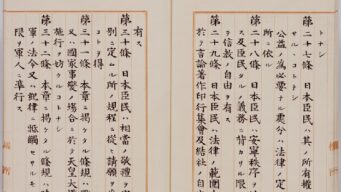 トナシ
第二十七條日本臣民ハ其ノ所有權
サルヽコトナシ
公益ノ爲必要ナル處分ハ法律ノ定
所ニ依ル
第二十八條日本臣民ハ安寧秩序
ス及臣民タルノ義務ニ背カサル限
信敎ノ自由ヲ有ス
第二十九條日本臣民ハ法律ノ範圍
於テ言論著作印行集會及結社ノ自
有ス
第三十條日本臣民ハ相當ノ敬禮
別ニ定ムル所ノ規程ニ從ヒ請願
コトヲ得
第三十一條本章ニ掲ケタル條規ハ
又ハ國家事變ノ場合ニ於テ天皇大
施行ヲ妨クルコトナシ
第三十二條本章ニ掲ケタル條規ハ
軍ノ法令又ハ紀律ニ牴觸セサルモ
限リ軍人ニ準行ス